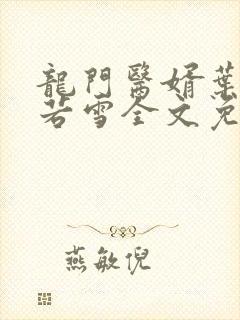 龍門醫婿葉
若雪全文免
燕敏倪